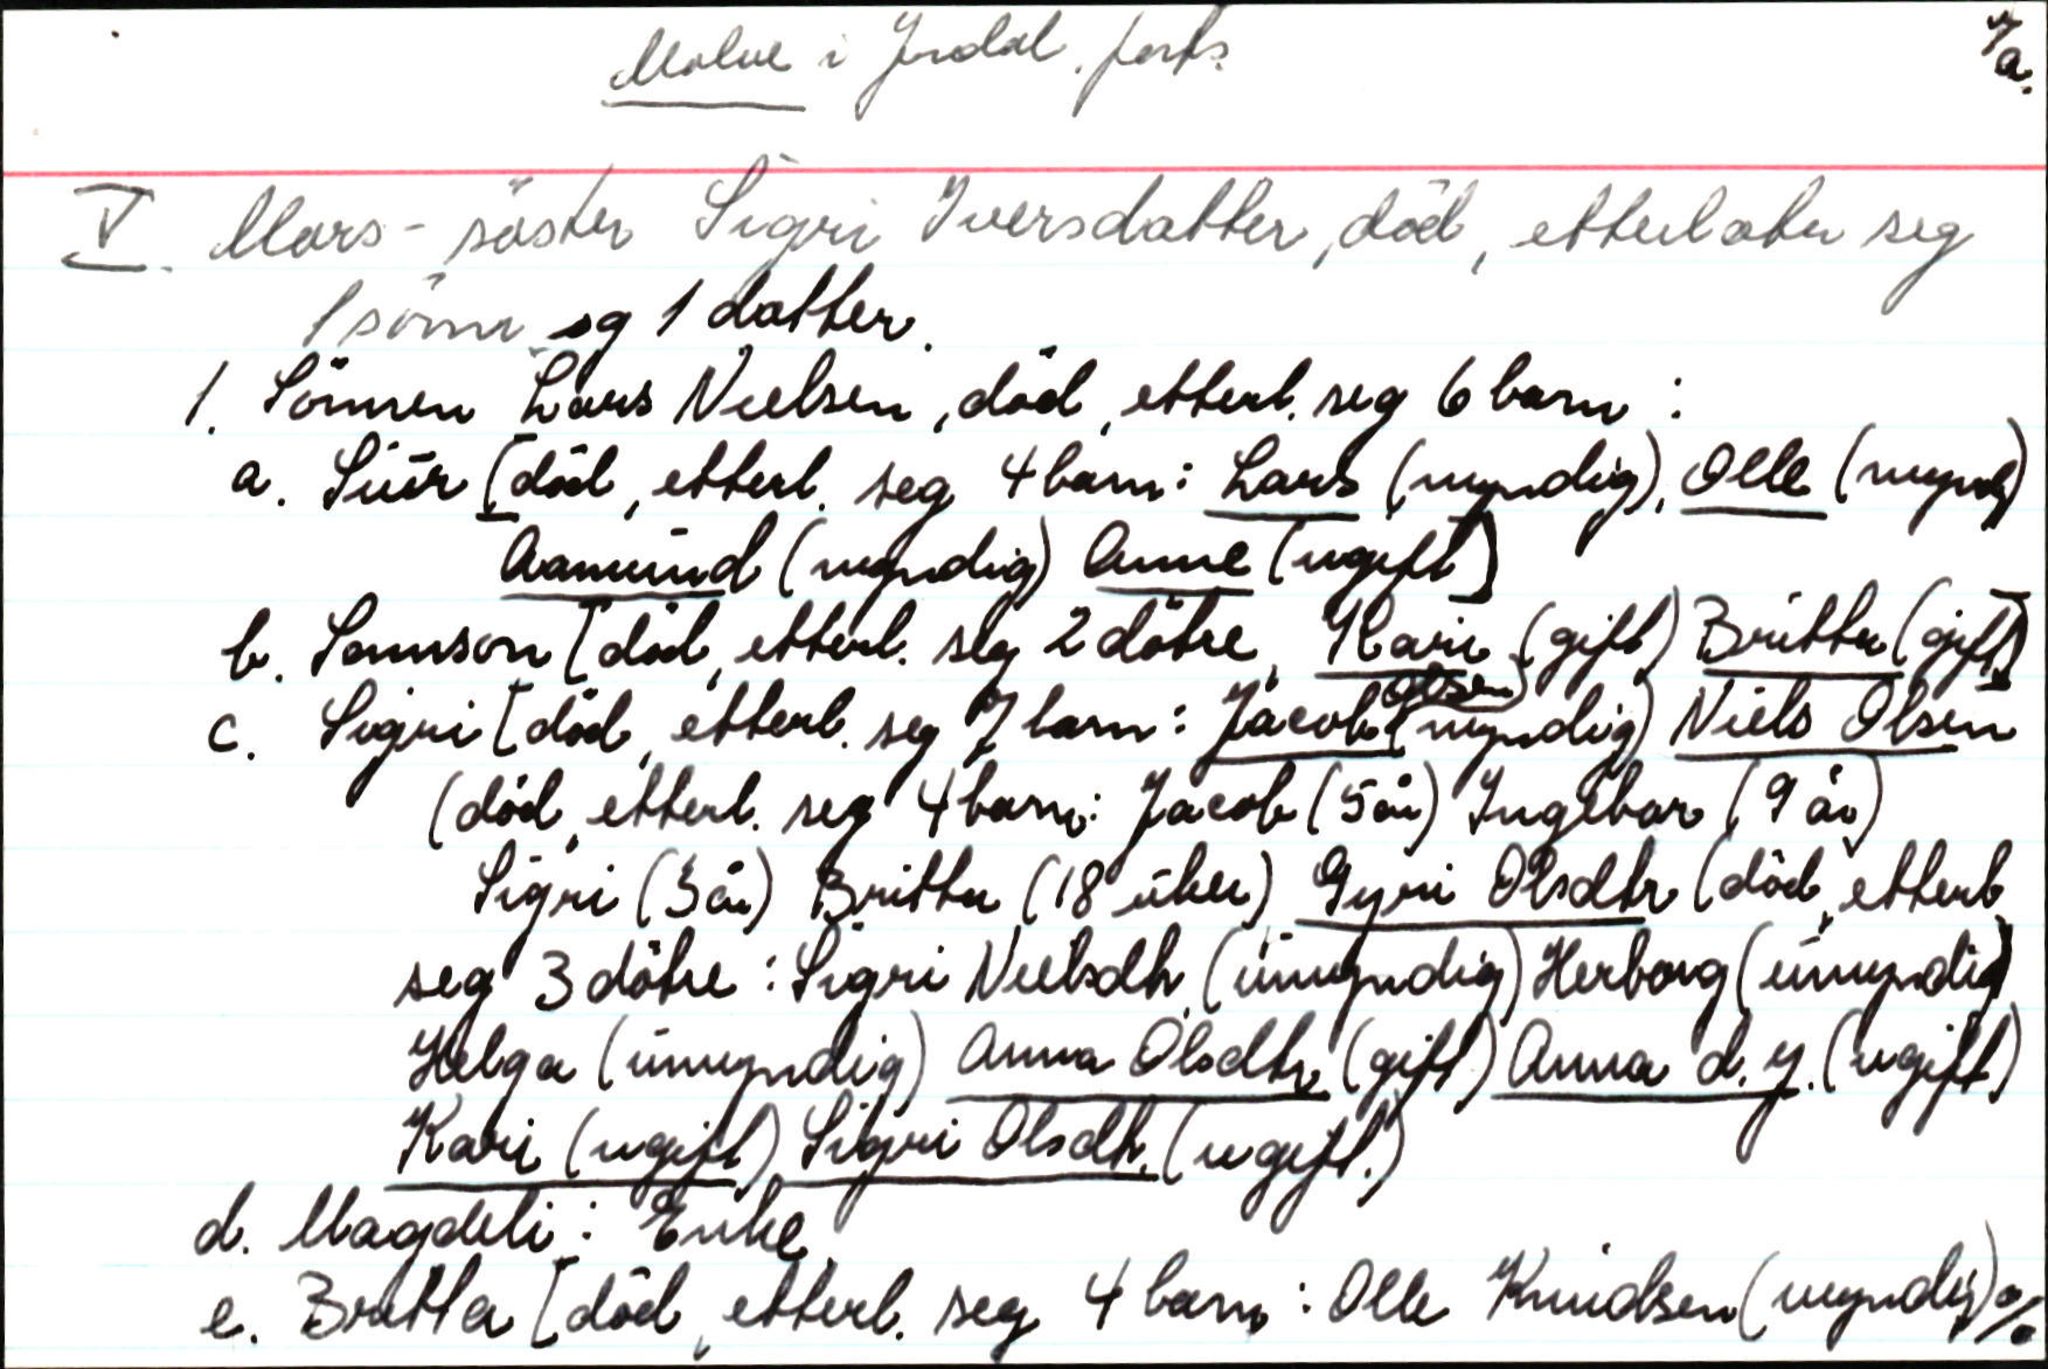 Molve i Jordal. forts.
7/a.
V. Mors-söster Sigri Iversdatter, död, etterlater seg
1 sönn og 1 datter.
1. Sönnen Lars Nielsen, död, etterl. seg 6 barn :
a. Siur [död, etterl. seg 4 barn: Lars (myndig), Olle (mynd)
Aamund (myndig) Anne (ugift)]
b. Samson [död, etterl. seg 2 dötre, Kari (gift) Britta (gift)]
Olsen
c. Sigri [död, etterl. seg 7 barn: Jacob (myndig) Niels Olsen
(död, etterl. seg 4 barn: Jacob (5 år) Ingebor (9 år)
Sigri (3 år) Britta (18 uker) Gyri Olsdtr (död, etterl
seg 3 dötre : Sigri Nielsdtr (umyndig) Herborg (umyndig)
Helga (umyndig) Anna Olsdtr (gift) Anna d.y. (ugift)
Kari (ugift) Sigri Olsdtr. (ugift.)
d. Magdeli : Enke
e. Britta [död, etterl. seg 4 barn : Olle Knudsen (myndig) %